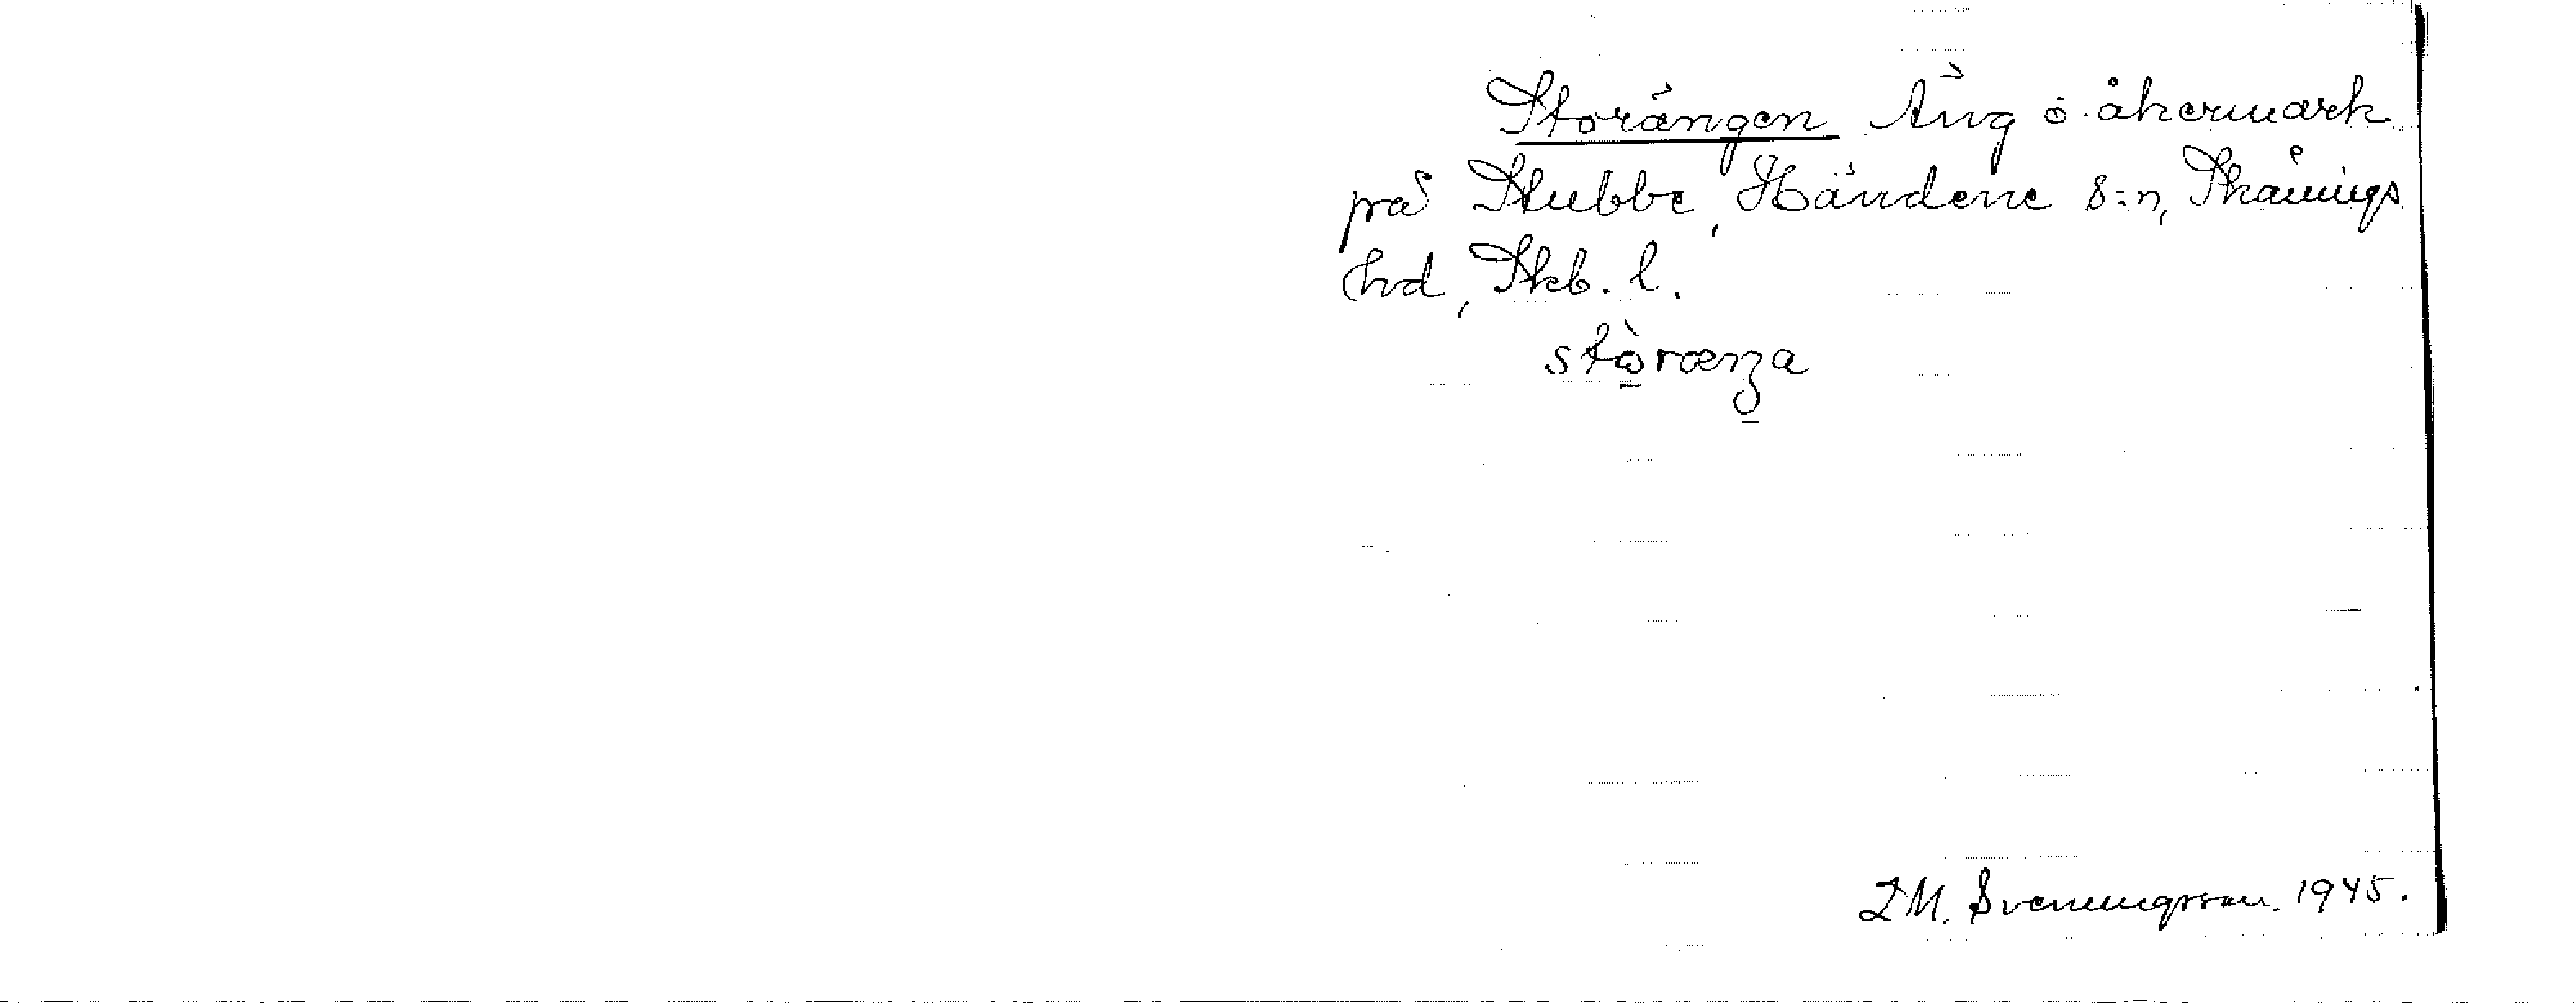 Storängen. Äng o. åkermark
på Stubbe, Händene s:n, Skånings
hd, Skb. l.
stòrænȝa
L M. Sveningsson. 1945.